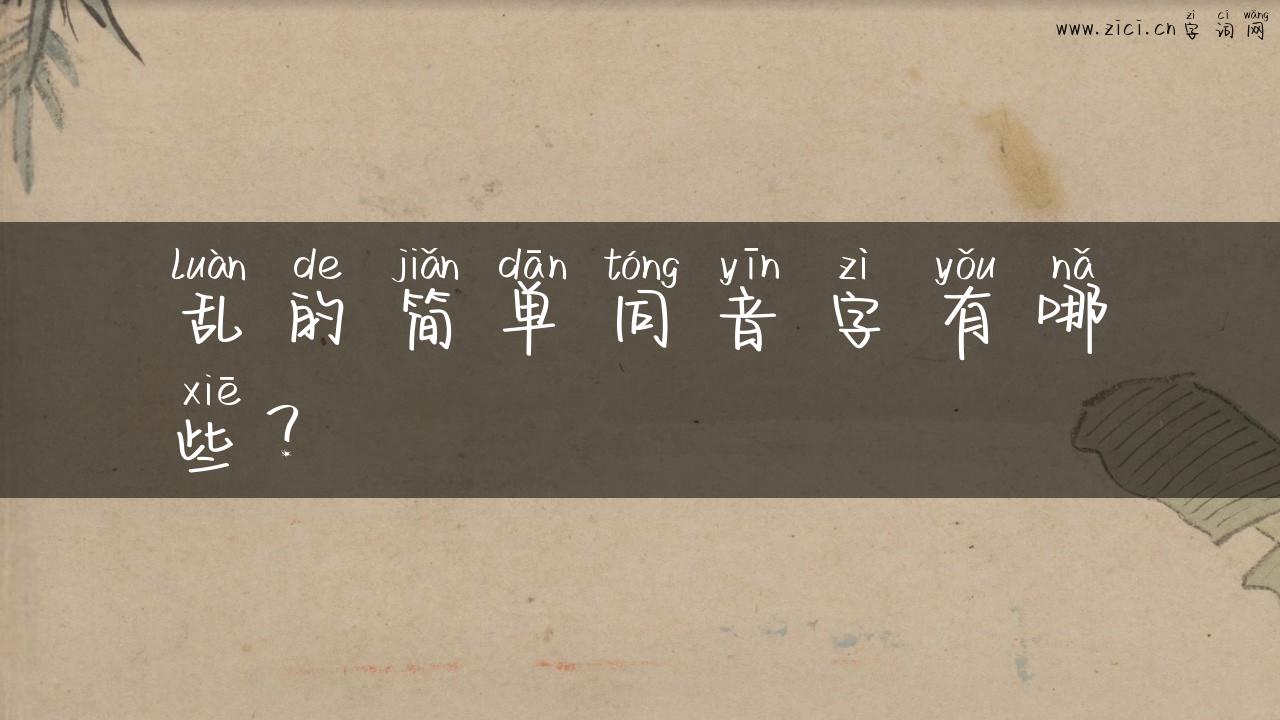 zì cí wǎng
www.zici.cn 字词网
luàn de jiǎn dān tóng yīn zì yǒu nǎ
乱的简单同音字有哪
xiē
些?